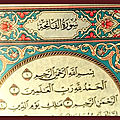 سورة الفاتحة
بسم الله الرحمن الرحيم
الحمد لله رب العلمين
الرحمن الرحيم
يوم الدين